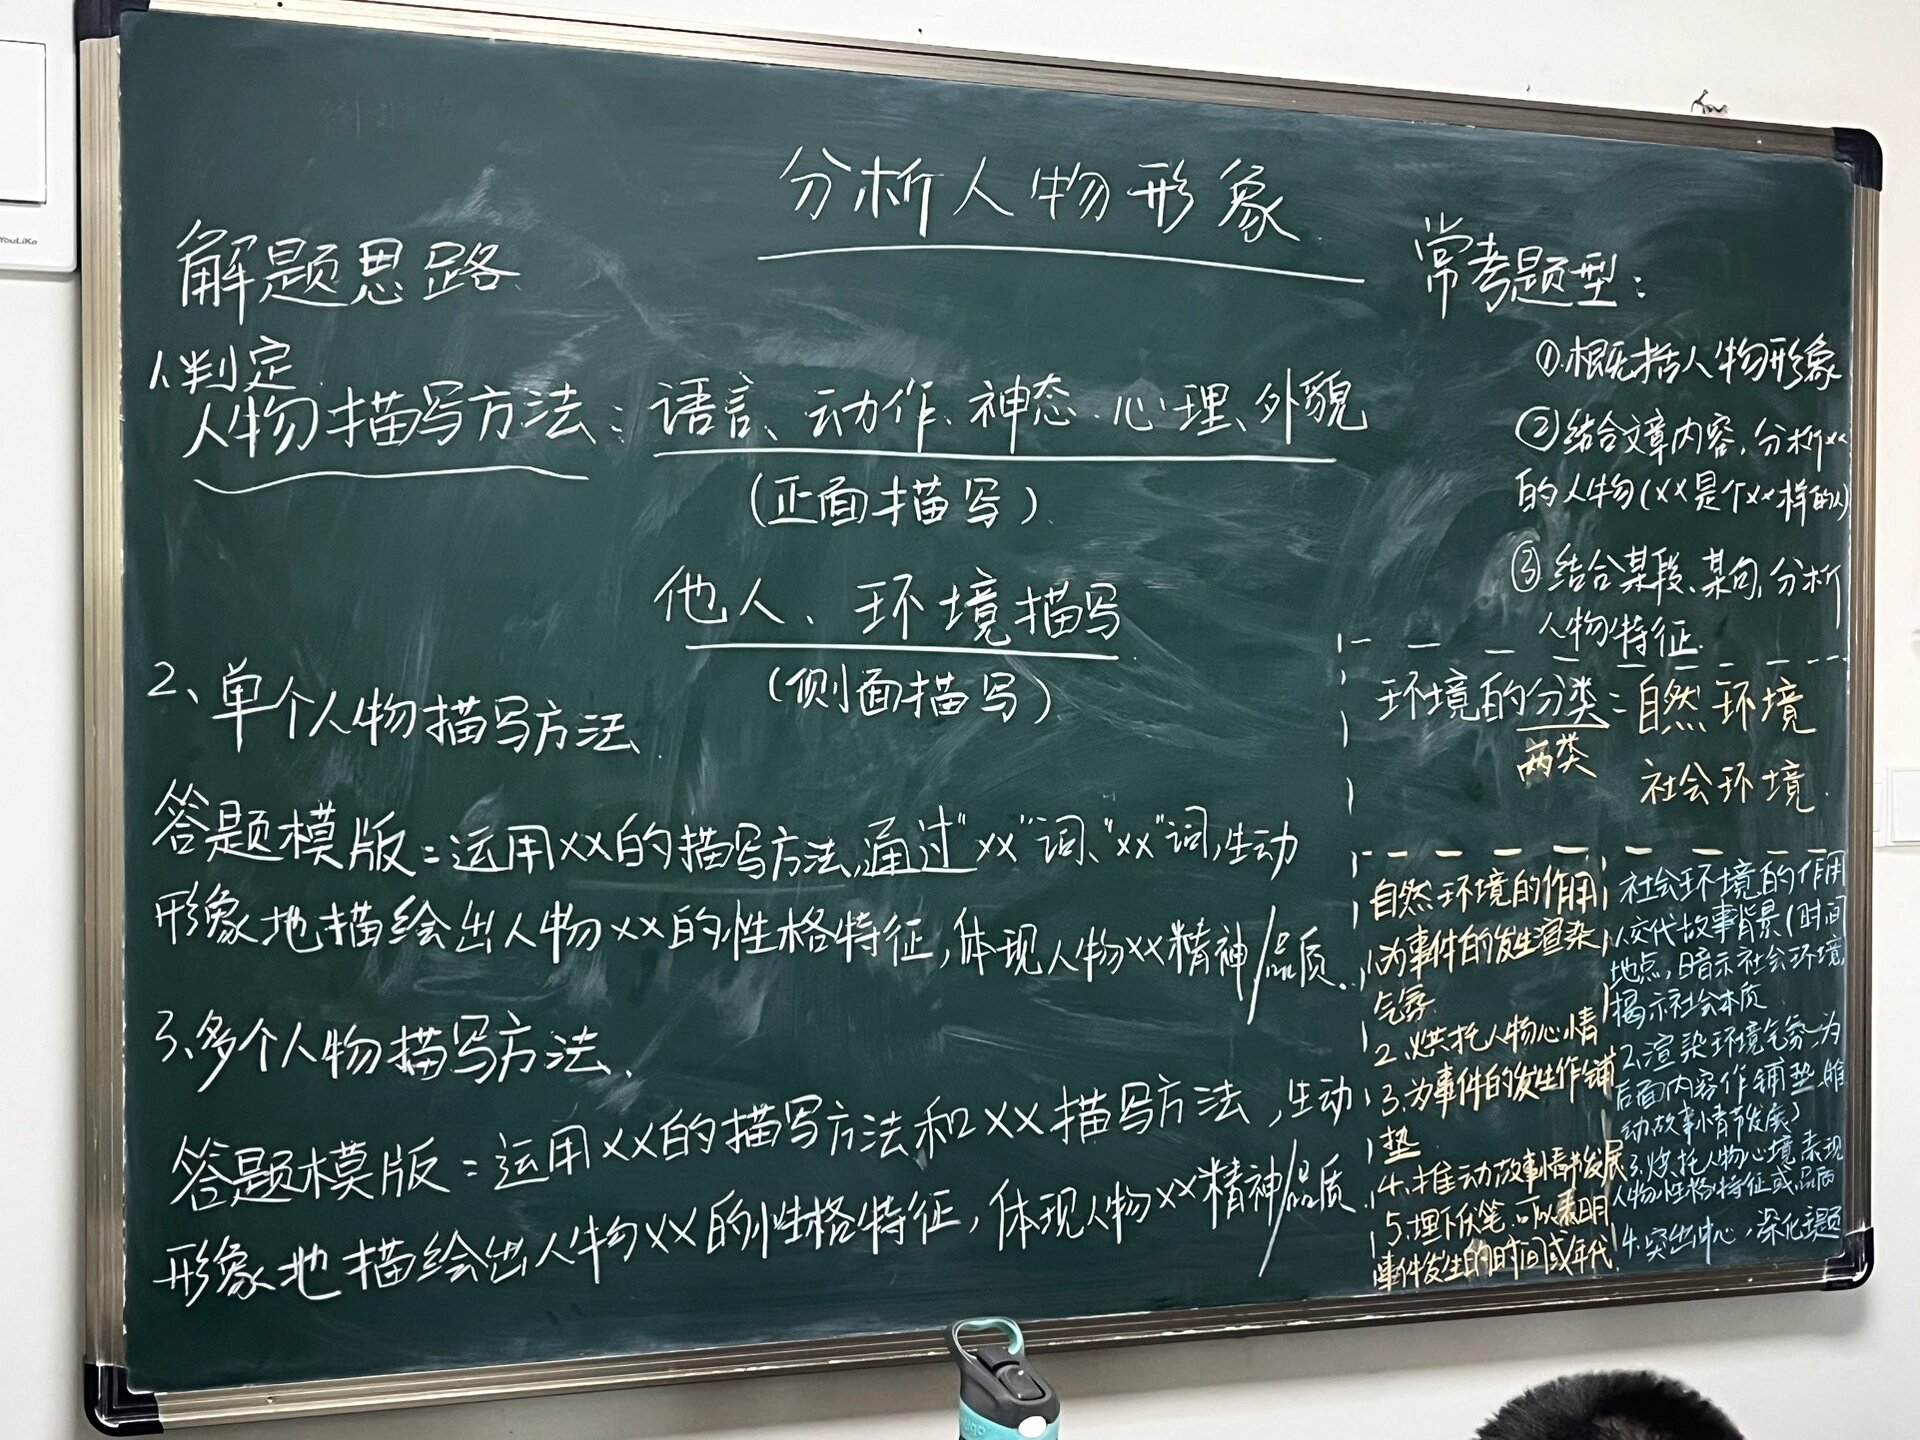 分析人物形象
解题思路
1.判定
人物描写方法：语言、动作、神态、心理、外貌
(正面描写)
他人、环境描写
(侧面描写)
2、单个人物描写方法
答题模版：运用xx的描写方法，通过"xx"词、"xx"词，生动
形象地描绘出人物xx的性格特征，体现人物xx精神/品质.
3、多个人物描写方法
答题模版：运用xx的描写方法和xx描写方法，生动
形象地描绘出人物xx的性格特征，体现人物xx精神/品质.
常考题型：
①.概括人物形象
②结合文章内容，分析xx
的人物(xx是个xx样的人)
③结合某段、某句，分析
人物特征.
环境的分类：自然环境
两类
社会环境.
自然环境的作用
1.为事件的发生渲染
气氛
2.烘托人物心情
3.为事件的发生作铺
垫
4.推动故事情节发展
5.埋下伏笔.可以表明
事件发生的时间或年代
社会环境的作用
1.交代故事背景(时间
地点，暗示社会环境,
揭示社会本质
2.渲染环境气氛，为
后面内容作铺垫,推
动故事情节发展)
3.烘托人物心境,表现
人物性格特征或品质
4.突出中心，深化主题
YouLiKo